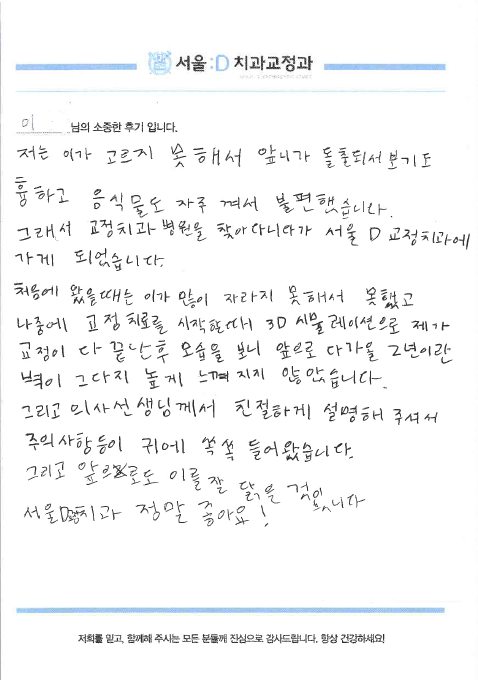 서울:D 치과교정과
이 님의 소중한 후기 입니다.
저는 이가 고르지 못해서 앞니가 돌출되서 보기도
흉하고 음식물도 자주 껴서 불편했습니다.
그래서 교정치과 병원을 찾아다니다가 서울 D 교정치과에
가게 되었습니다.
처음에 왔을때는 이가 많이 자라지 못해서 못했고
나중에 교정 치료를 시작할때 3D 시뮬레이션으로 제가
교정이 다 끝난 후 모습을 보니 앞으로 다가올 2년이란
벽이 그다지 높게 느껴지지 않았습니다.
그리고 의사선생님께서 친절하게 설명해 주셔서
주의사항등이 귀에 쏙쏙 들어왔습니다.
그리고 앞으로도 이를 잘 닦을 것입니다
서울D치과 정말 좋아요!
저희를 믿고, 함께해 주시는 모든 분들께 진심으로 감사드립니다. 항상 건강하세요!